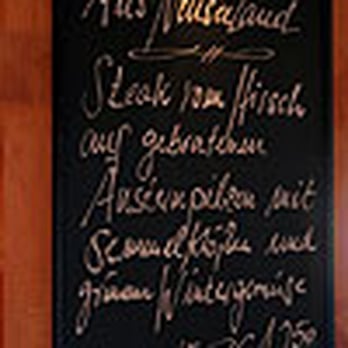 Aus Neuseeland
Steak vom Hirsch
auf gebratenen
Austernpilzen mit
Semmelklößen und
grünem Wintergemüse